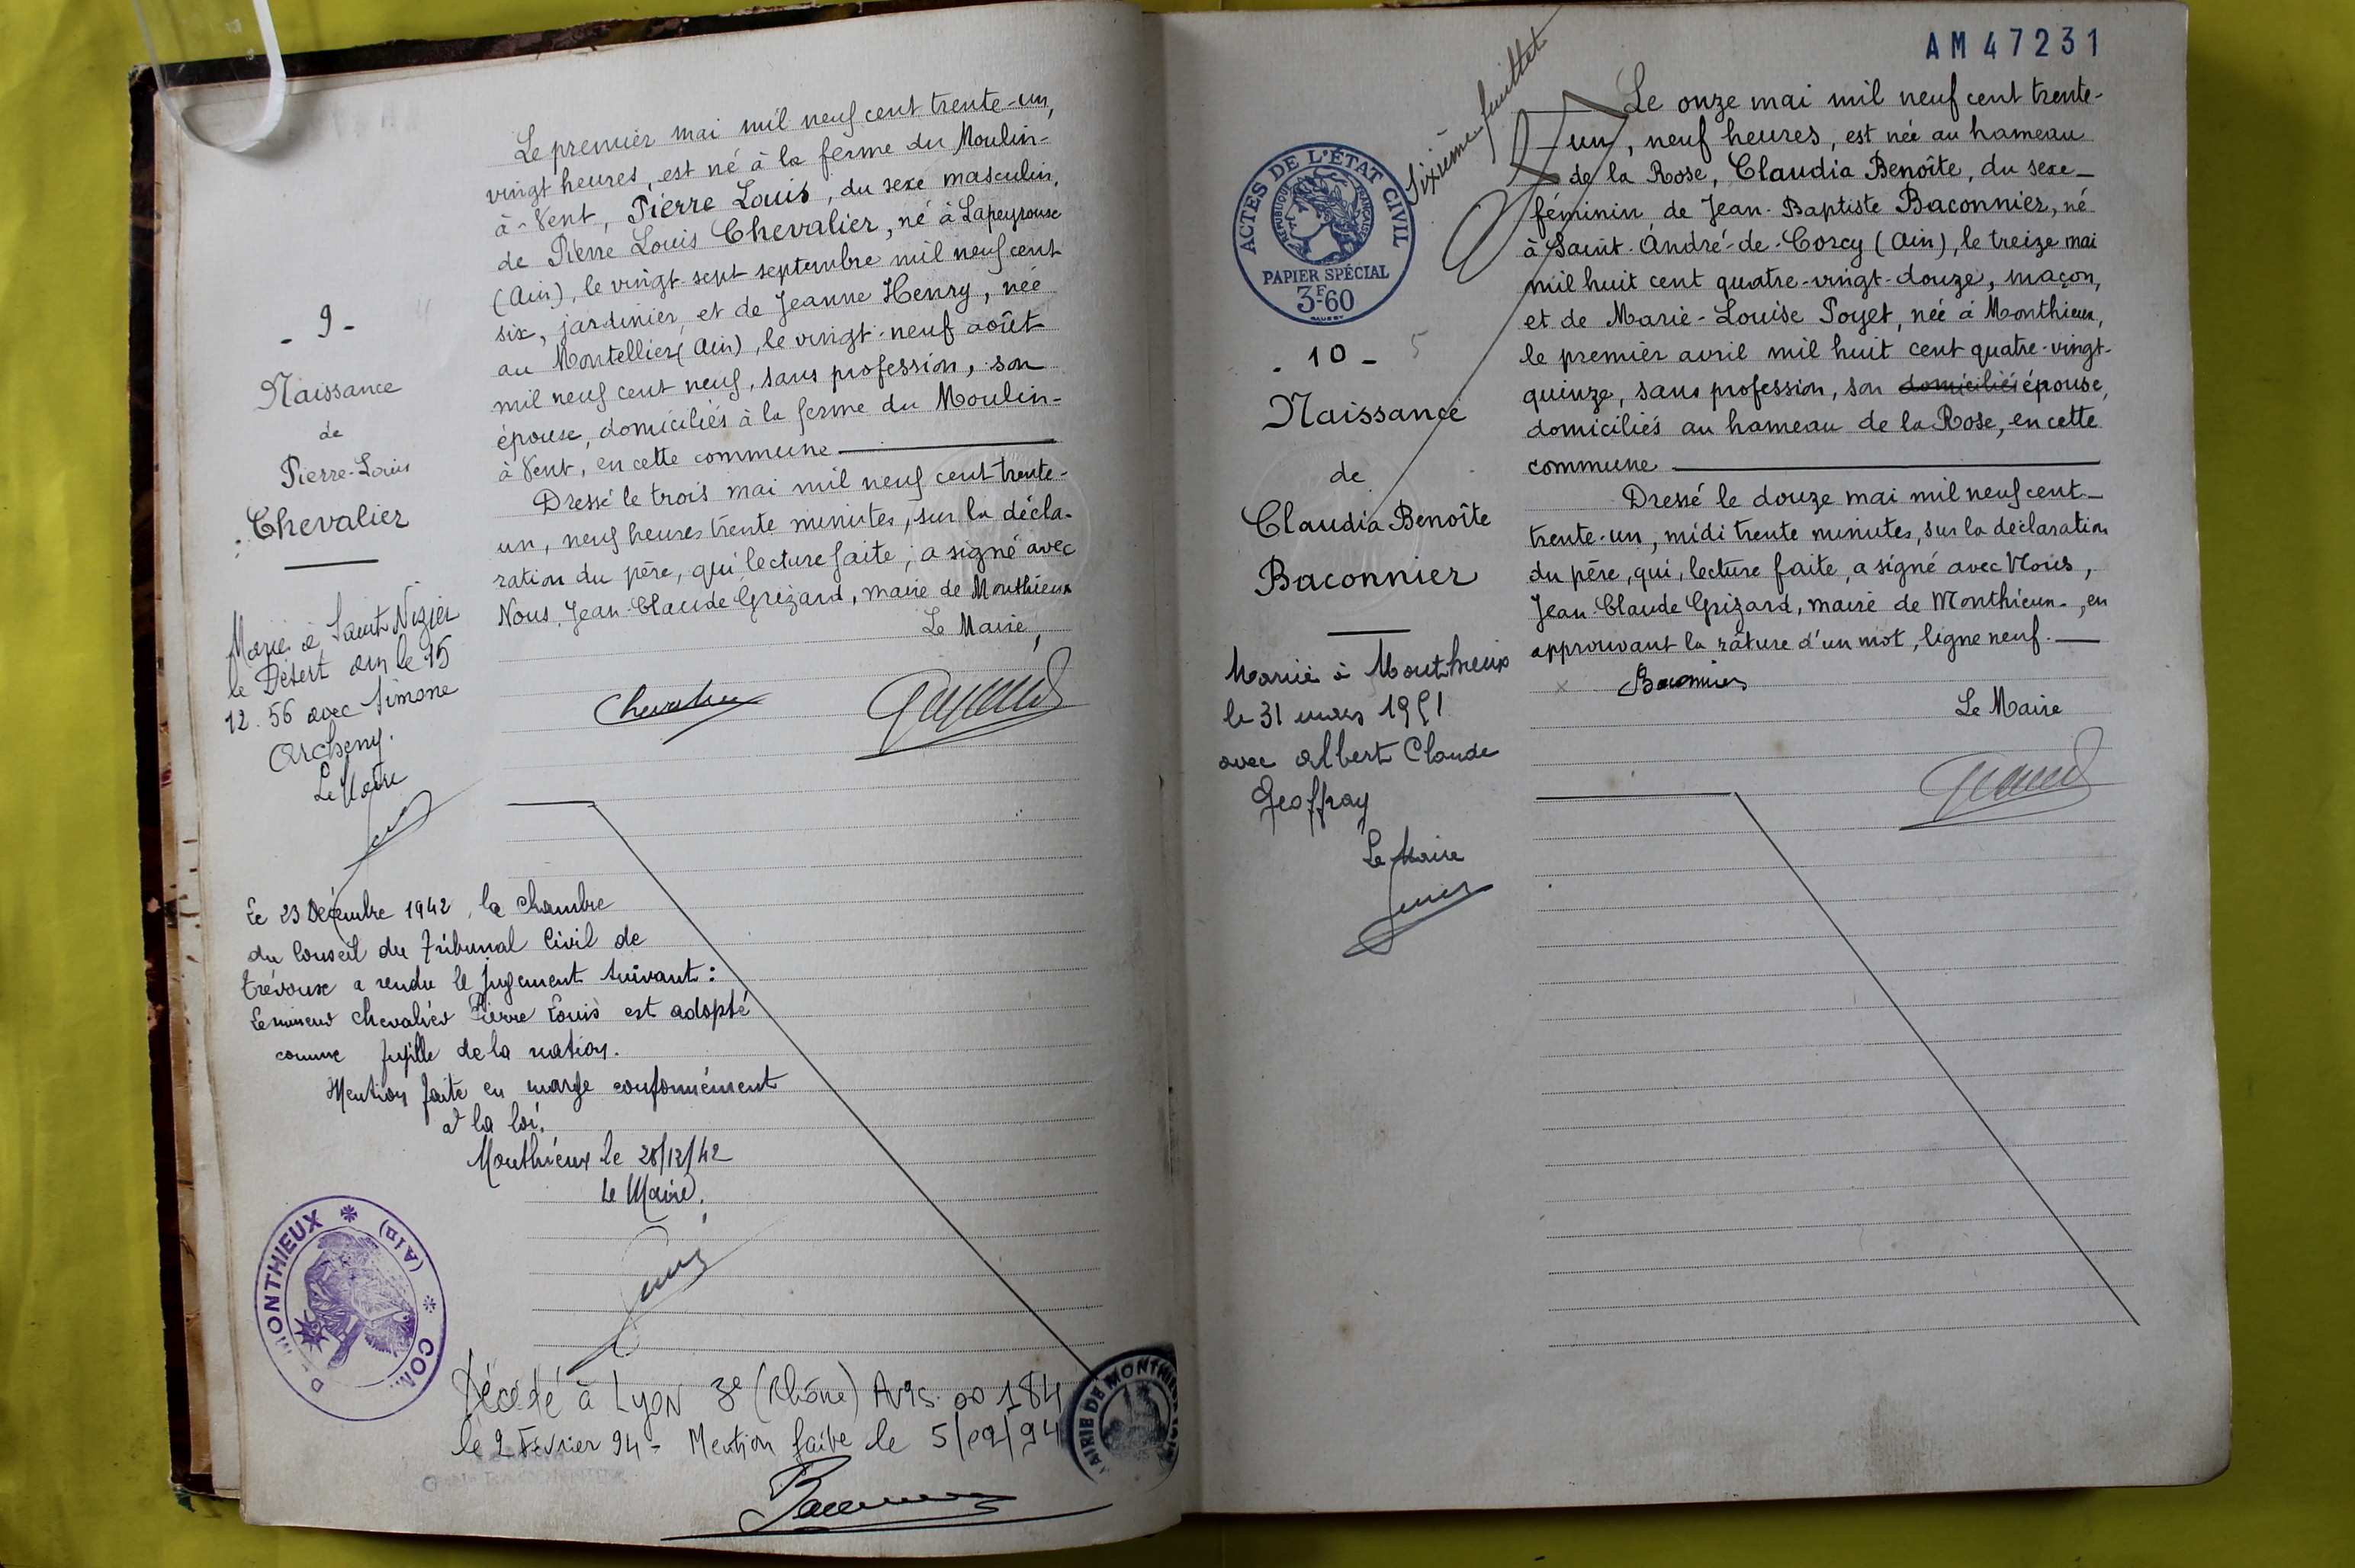 - 9 -
Naissance
de
Pierre-Louis
Chevalier
Le premier mai mil neuf cent trente-un,
vingt heures, est né à la ferme du Moulin-
à-Vent, Pierre Louis, du sexe masculin,
de Pierre Louis Chevalier, né à Lapeyrouse
(Ain), le vingt-sept septembre mil neuf cent
six, jardinier, et de Jeanne Henry, née
au Montellier (Ain), le vingt-neuf août
mil neuf cent neuf, sans profession, son
épouse, domiciliés à la ferme du Moulin-
à Vent, en cette commune
Dressé le trois mai mil neuf cent trente-
un, neuf heures trente minutes, sur la décla-
ration du père, qui lecture faite, a signé avec
Nous, Jean-Claude Grizard, maire de Monthieux
Le Maire,
Chevalier
Marié à Saint Nizier
le Désert Ain le 15
12. 56 avec Simone
Archeny.
Le Maire
Le 23 Décembre 1942, la chambre
du Conseil du Tribunal Civil de
Trévoux a rendu le jugement suivant :
Le mineur Chevalier Pierre Louis est adopté
comme pupille de la nation.
Mention faite en marge conformément
à la loi.
Monthieux le 28/12/42
Le Maire.
MONTHIEUX * (AIN) * COM
Décédé à Lyon 3e (Rhône) Avis no 184
le 2 Février 94 - Mention faite le 5/02/94
MAIRIE DE MONTHIEUX
AM47231
Sixième feuillet
ACTES DE L'ÉTAT CIVIL
RÉPUBLIQUE FRANÇAISE
PAPIER SPÉCIAL
3F60
- 10 - 5
Naissance
de
Claudia Benoîte
Baconnier
Le onze mai mil neuf cent trente-
un, neuf heures, est née au hameau
de la Rose, Claudia Benoîte, du sexe
féminin de Jean-Baptiste Baconnier, né
à Saint-André-de-Corcy (Ain), le treize mai
mil huit cent quatre-vingt-douze, maçon,
et de Marie-Louise Poyet, née à Monthieux,
le premier avril mil huit cent quatre-vingt-
quinze, sans profession, son domiciliés épouse,
domiciliés au hameau de la Rose, en cette
commune
Dressé le douze mai mil neuf cent
trente-un, midi trente minutes, sur la déclaration
du père, qui, lecture faite, a signé avec Nous,
Jean-Claude Grizard, maire de Monthieux, en
approuvant la rature d'un mot, ligne neuf.
Baconnier
Le Maire
Mariée à Monthieux
le 31 mars 1951
avec Albert Claude
Geoffray
Le Maire